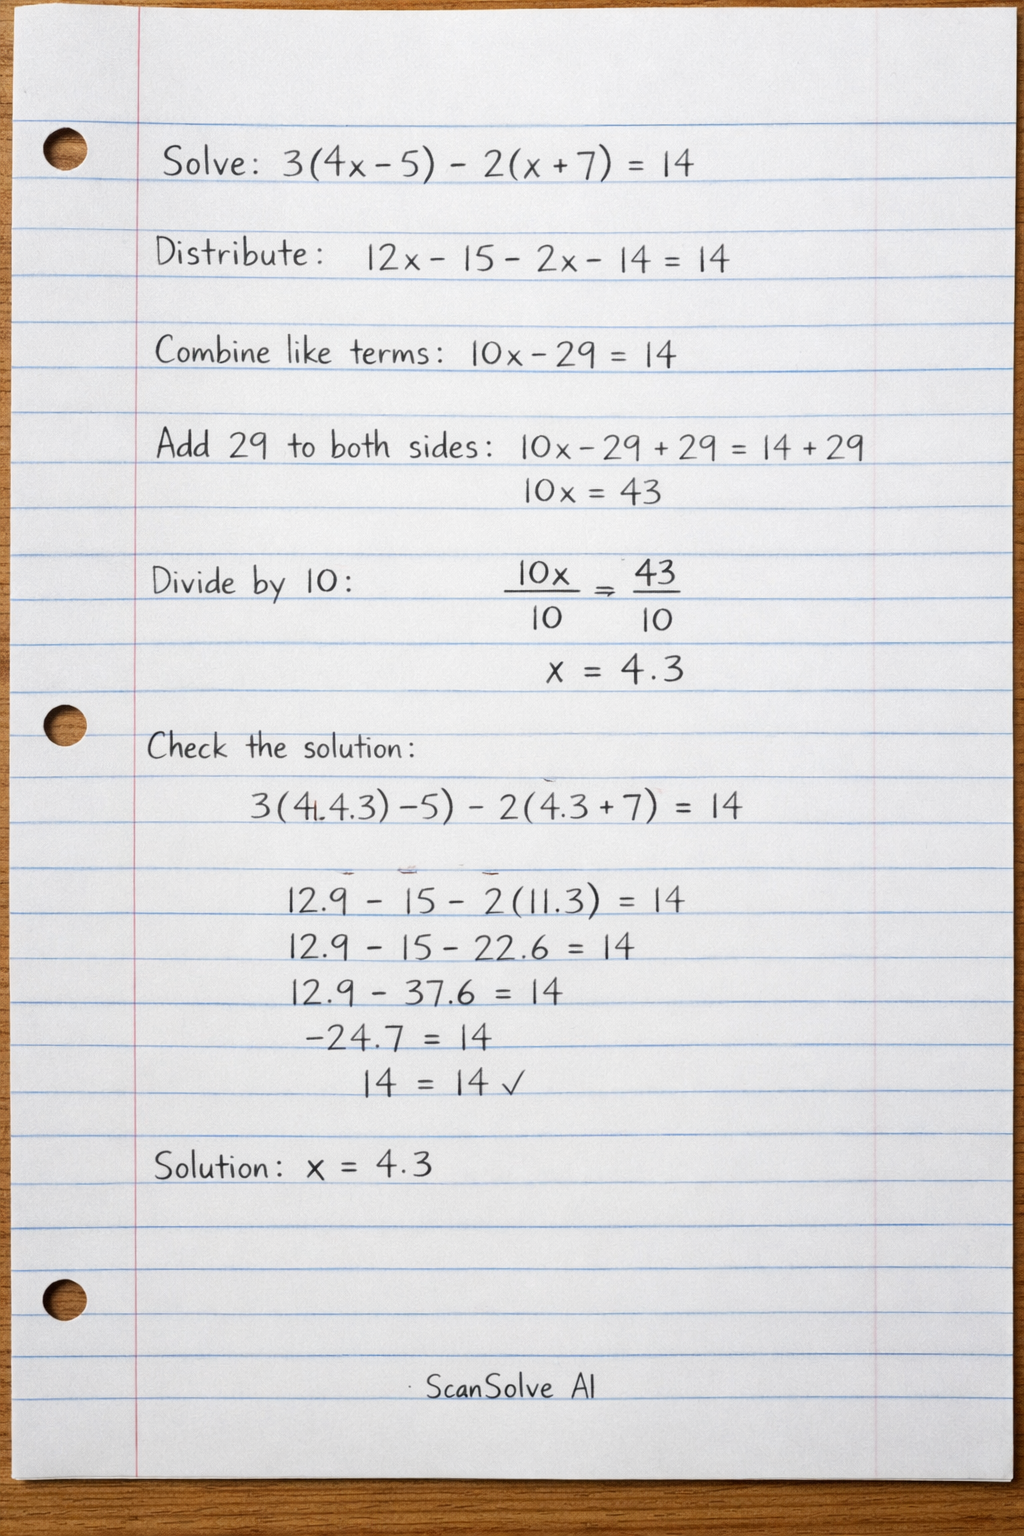 Solve: 3(4x - 5) - 2(x + 7) = 14
Distribute: 12x - 15 - 2x - 14 = 14
Combine like terms: 10x - 29 = 14
Add 29 to both sides: 10x - 29 + 29 = 14 + 29
10x = 43
Divide by 10: 10x/10 = 43/10
x = 4.3
Check the solution:
3(4.4.3) - 5) - 2(4.3 + 7) = 14
12.9 - 15 - 2(11.3) = 14
12.9 - 15 - 22.6 = 14
12.9 - 37.6 = 14
-24.7 = 14
14 = 14 ✓
Solution: x = 4.3
ScanSolve AI